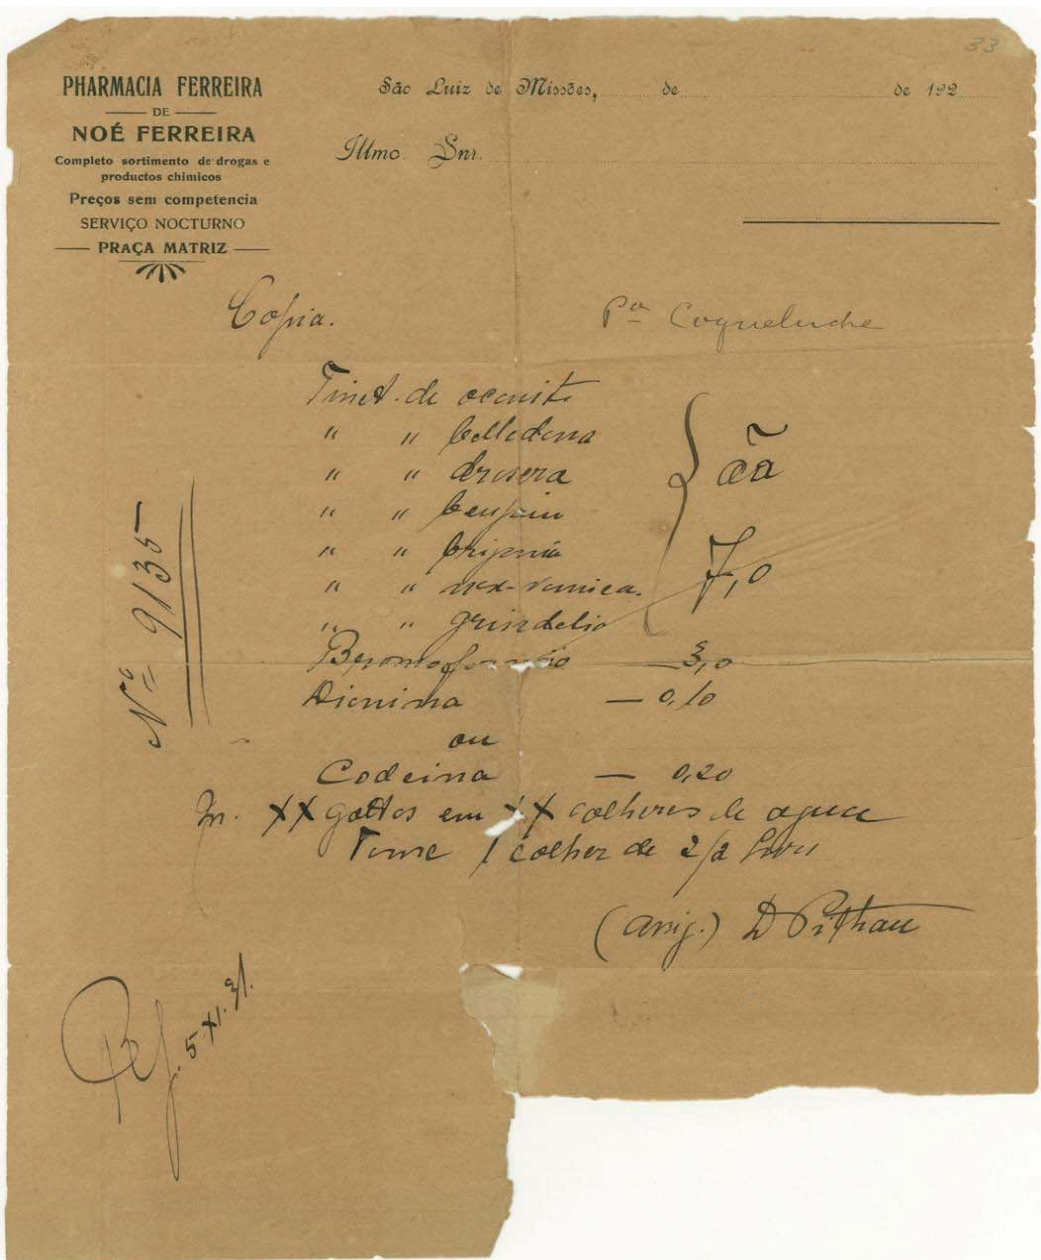 33
PHARMACIA FERREIRA
DE
NOÉ FERREIRA
Completo sortimento de drogas e
productos chimicos
Preços sem competencia
SERVIÇO NOCTURNO
PRAÇA MATRIZ
São Luiz de Missões, de de 192
Illmo. Snr.
Copia.
Pª Coqueluche
Tinct. de aconito
" " belladona
" " drosera
" " benjoin
" "
" " nox-vomica.
" " grindelia
ãa
7,0
Bromoformio — 3,0
Dionina — 0,10
ou
Codeina — 0,20
XX gottas em XX colheres de agua
Tome 1 colher de 2/2 horas
(assig.) D Pithan
Nº 9135
Ref. 5-XI-31.